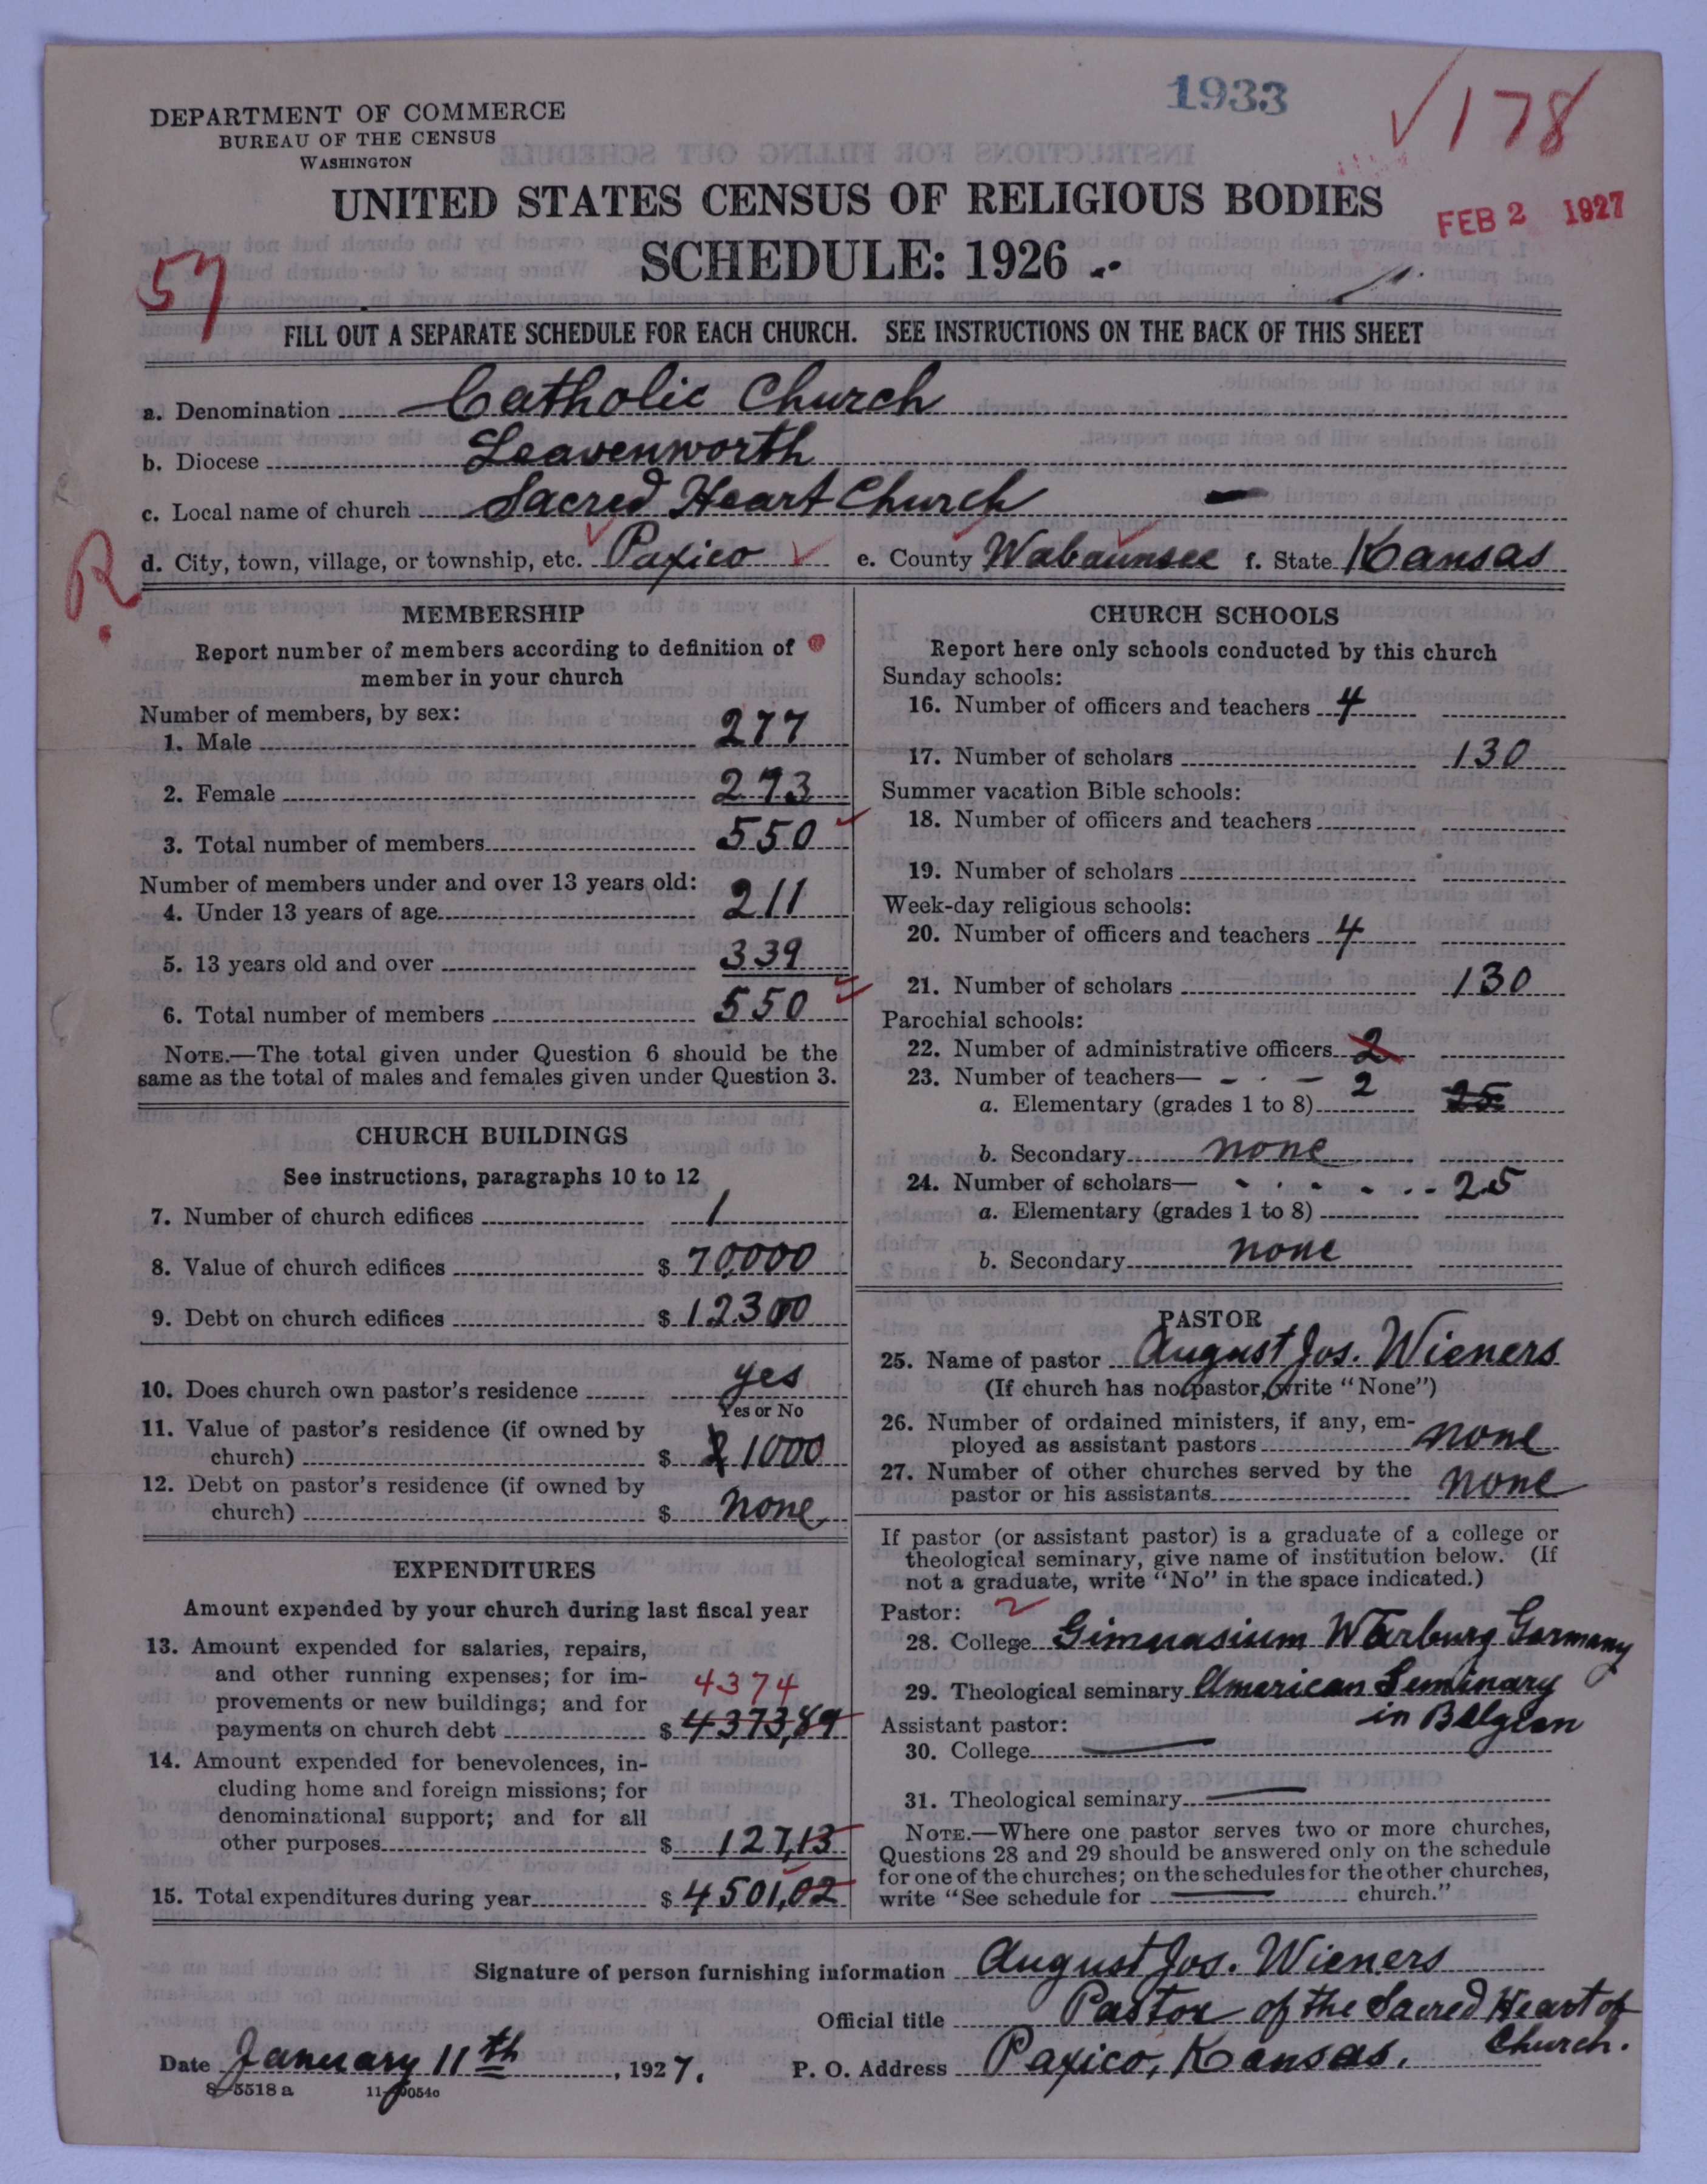 1933
178
DEPARTMENT OF COMMERCE
BUREAU OF THE CENSUS
WASHINGTON
UNITED STATES CENSUS OF RELIGIOUS BODIES
FEB 2 1927
SCHEDULE: 1926
57
FILL OUT A SEPARATE SCHEDULE FOR EACH CHURCH. SEE INSTRUCTIONS ON THE BACK OF THIS SHEET
a. Denomination Catholic Church
b. Diocese Leavenworth
c. Local name of church Sacred Heart Church
R.
d. City, town, village, or township, etc. Paxico e. County Wabaunsee f. State Kansas
MEMBERSHIP
Report number of members according to definition of
member in your church
Number of members, by sex:
1. Male 277
2. Female 273
3. Total number of members 550
Number of members under and over 13 years old:
4. Under 13 years of age 211
5. 13 years old and over 339
6. Total number of members 550
NOTE.—The total given under Question 6 should be the
same as the total of males and females given under Question 3.
CHURCH BUILDINGS
See instructions, paragraphs 10 to 12
7. Number of church edifices 1
8. Value of church edifices $ 70,000
9. Debt on church edifices $ 12300
10. Does church own pastor's residence yes
Yes or No
11. Value of pastor's residence (if owned by
church) $ 1000
12. Debt on pastor's residence (if owned by
church) $ none
EXPENDITURES
Amount expended by your church during last fiscal year
13. Amount expended for salaries, repairs,
and other running expenses; for im-
provements or new buildings; and for
4374
payments on church debt $ 4373,89
14. Amount expended for benevolences, in-
cluding home and foreign missions; for
denominational support; and for all
other purposes $ 127,13
15. Total expenditures during year $ 4501,02
CHURCH SCHOOLS
Report here only schools conducted by this church
Sunday schools:
16. Number of officers and teachers 4
17. Number of scholars 130
Summer vacation Bible schools:
18. Number of officers and teachers
19. Number of scholars
Week-day religious schools:
20. Number of officers and teachers 4
21. Number of scholars 130
Parochial schools:
22. Number of administrative officers 2
23. Number of teachers— 2
a. Elementary (grades 1 to 8) 25
b. Secondary none
24. Number of scholars— 25
a. Elementary (grades 1 to 8)
b. Secondary none
PASTOR
25. Name of pastor August Jos. Wieners
(If church has no pastor, write "None")
26. Number of ordained ministers, if any, em-
ployed as assistant pastors none
27. Number of other churches served by the
pastor or his assistants none
If pastor (or assistant pastor) is a graduate of a college or
theological seminary, give name of institution below. (If
not a graduate, write "No" in the space indicated.)
Pastor:
28. College Gimnasium Warburg Germany
29. Theological seminary American Seminary
in Belgien
Assistant pastor:
30. College
31. Theological seminary
NOTE.—Where one pastor serves two or more churches,
Questions 28 and 29 should be answered only on the schedule
for one of the churches; on the schedules for the other churches,
write "See schedule for church."
Signature of person furnishing information August Jos. Wieners
Official title Pastor of the Sacred Heart of
Church.
Date January 11th, 1927. P. O. Address Paxico, Kansas.
8-5518 a